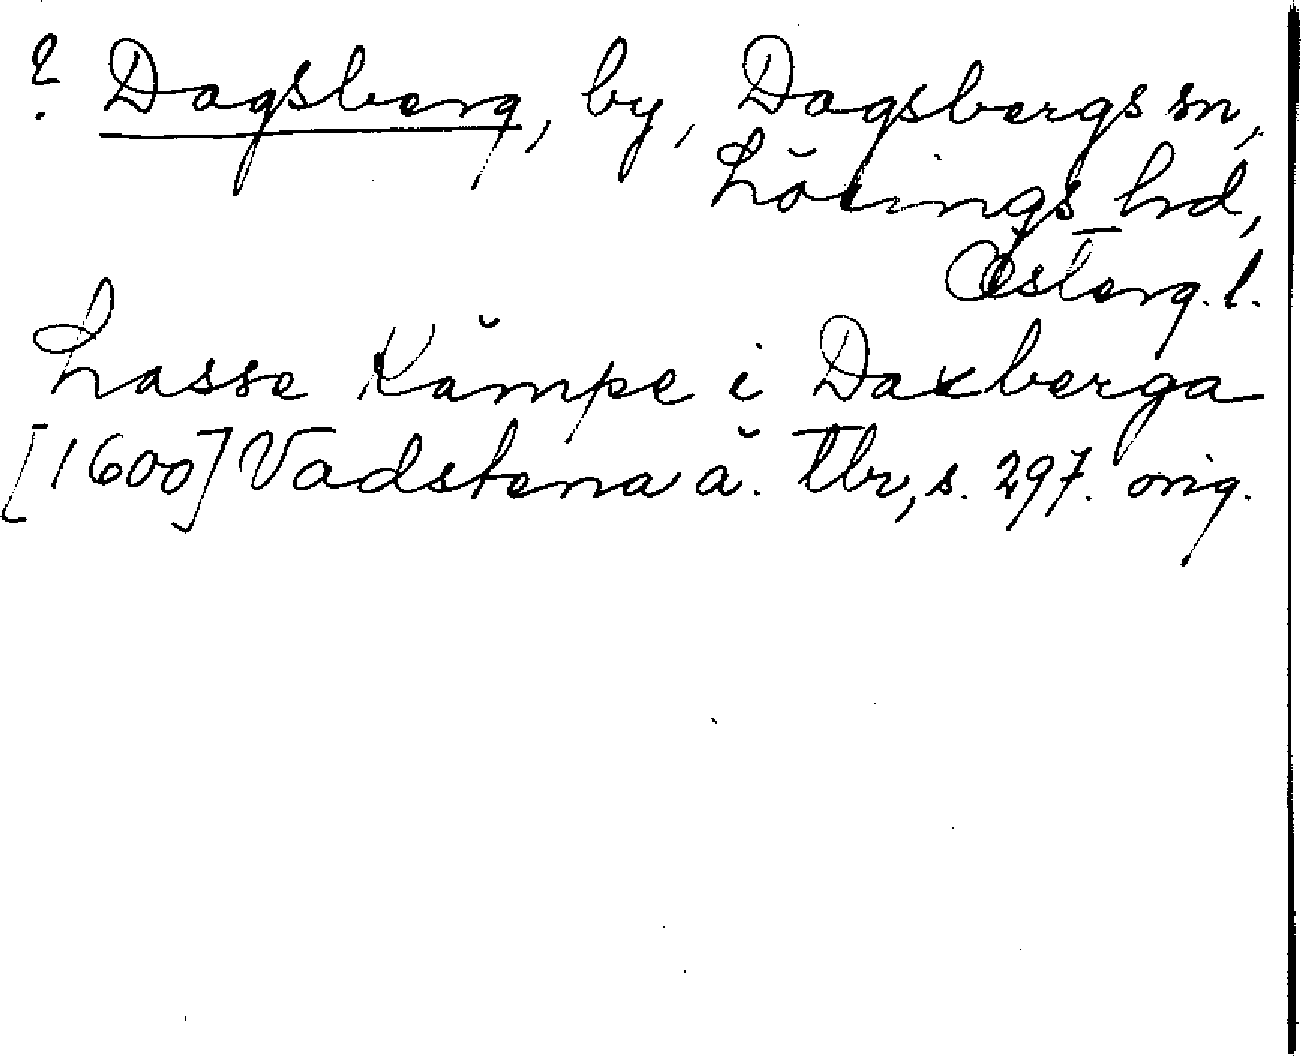 ? Dagsberg, by, Dagsbergs sn,
Lösings hd,
Österg. l.
Lasse Kämpe i Daxberga
[1600] Vadstena ä. tbr, s. 297. orig.